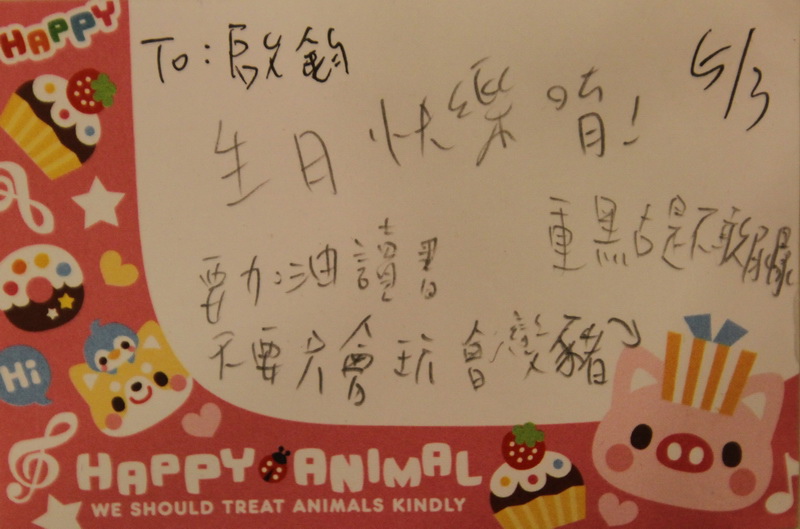 HAPPY
To: 啟鈞
5/3
生日快樂唷!
要加油讀書
不要只會玩會變豬
重點是不要
Hi
HAPPY ANIMAL
WE SHOULD TREAT ANIMALS KINDLY